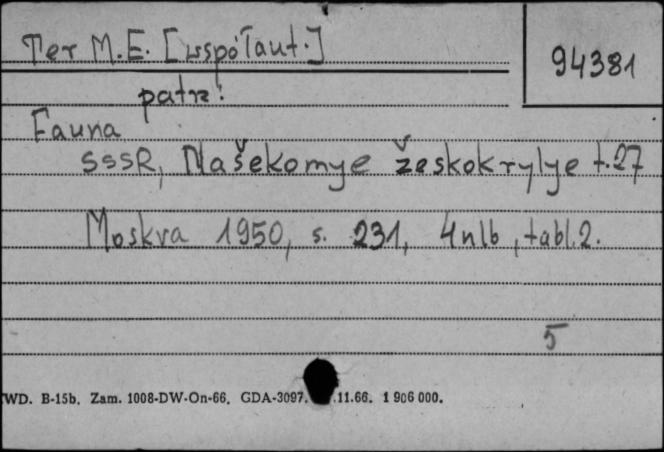 Ter M.E. [współaut.]
94381
patrz:
Fauna
SSSR, Našekomye žeskokrylye t.27
Moskva 1950, s. 231, 4nlb, tabl.2.
5
WD. B-15b. Zam. 1008-DW-On-66. GDA-3097. .11.66. 1 906 000.